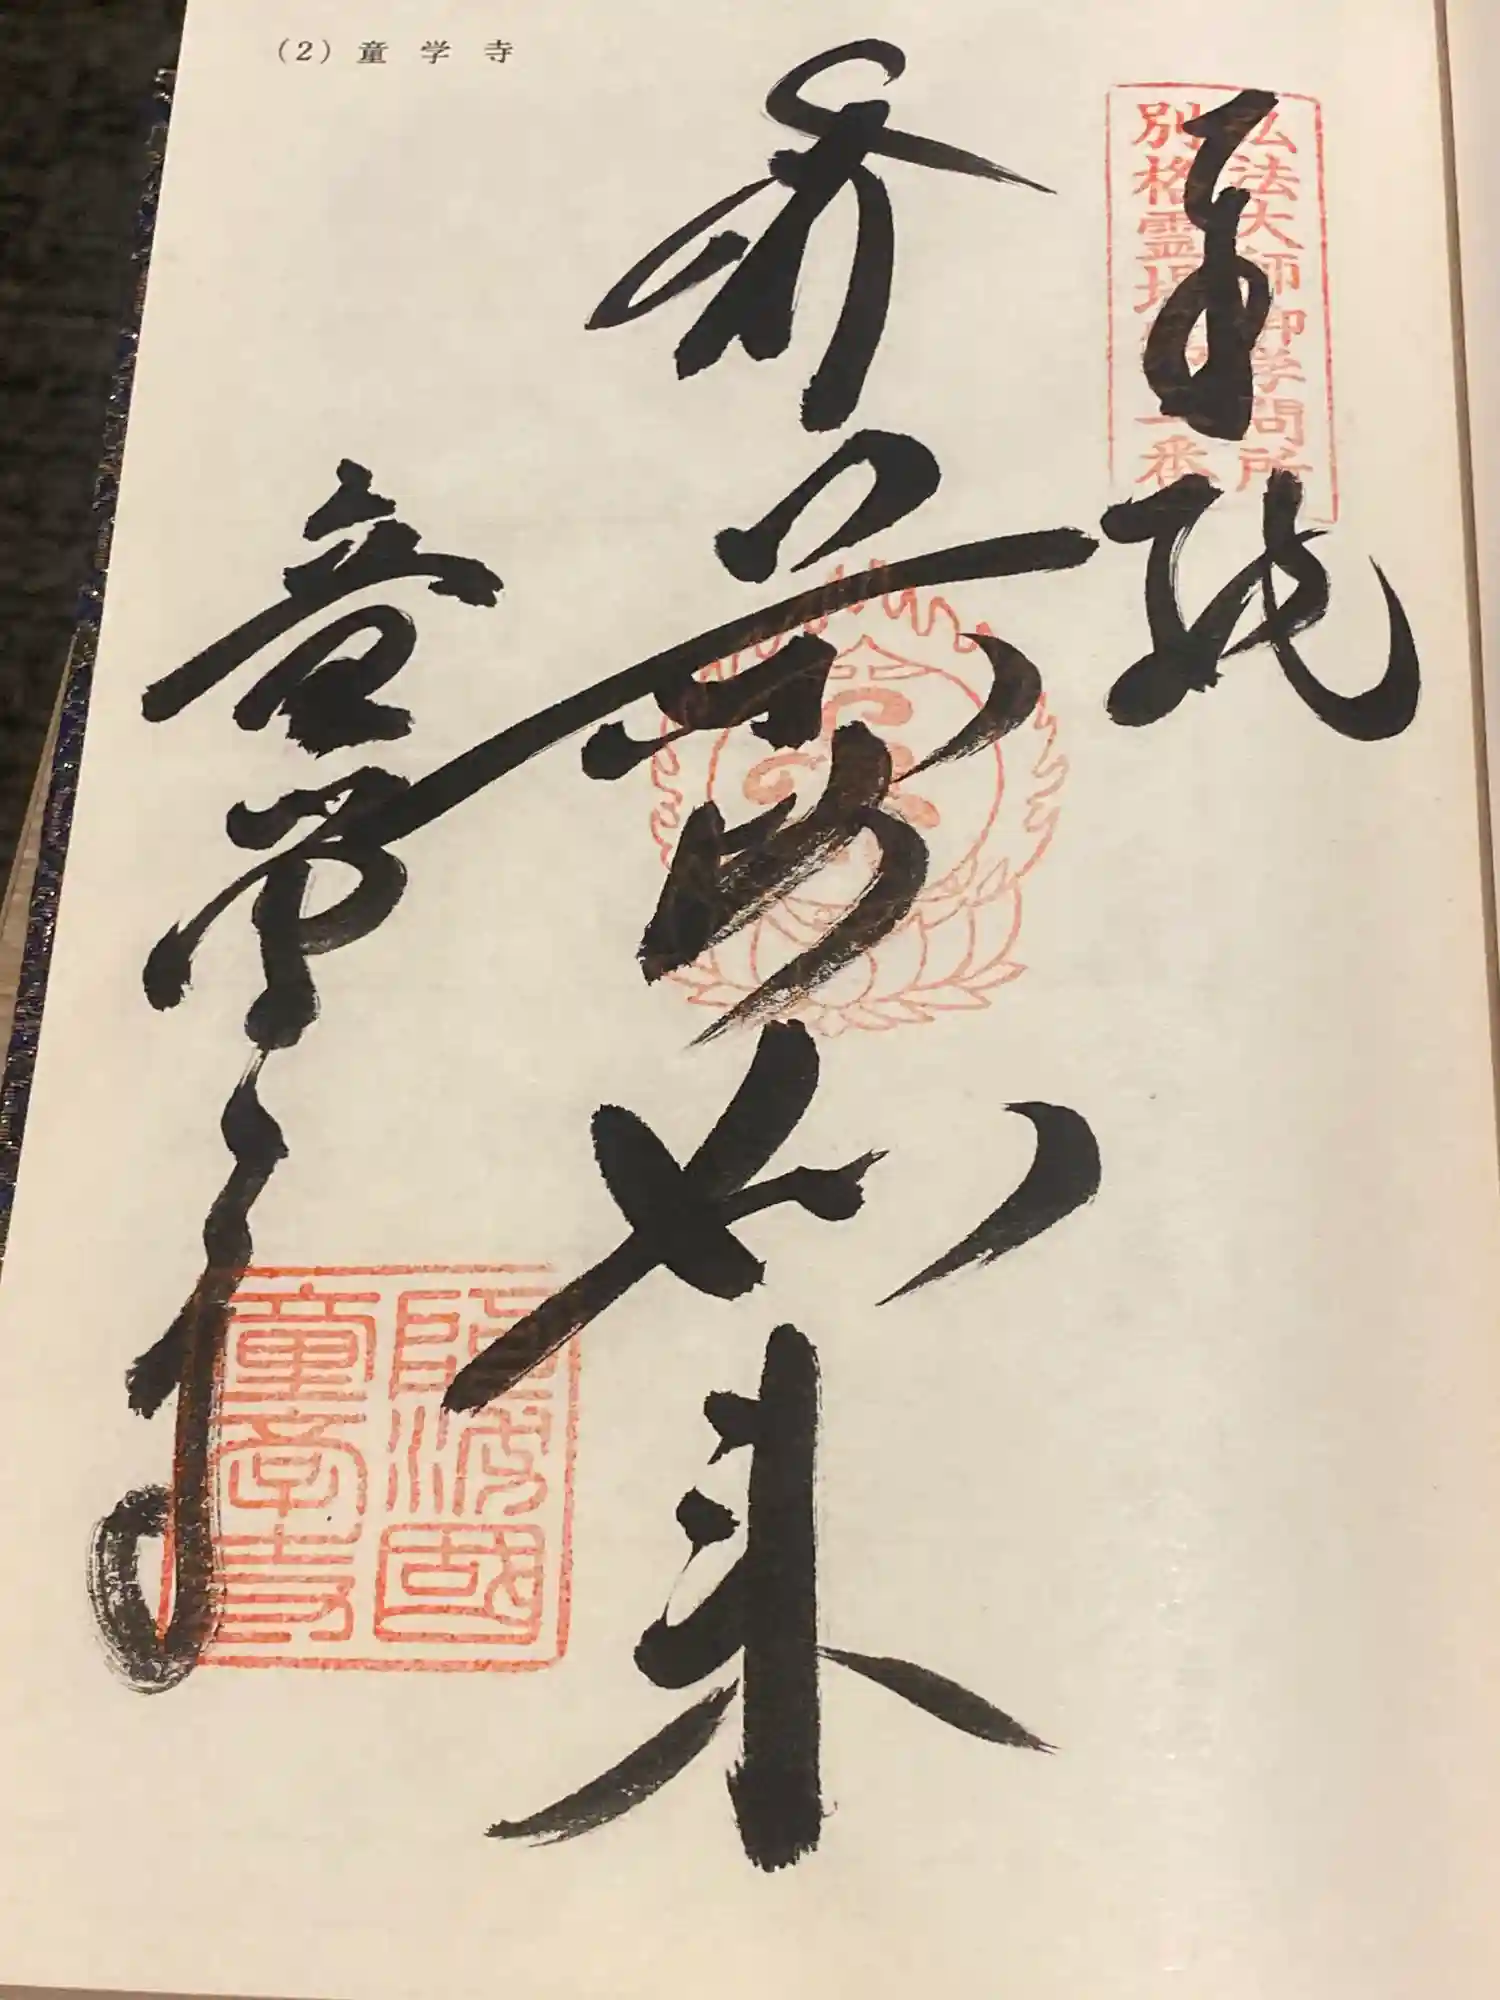 (2) 童学寺
弘法大師御学問所
別格霊場第二番
奉納
薬師如来
童学寺
童学寺